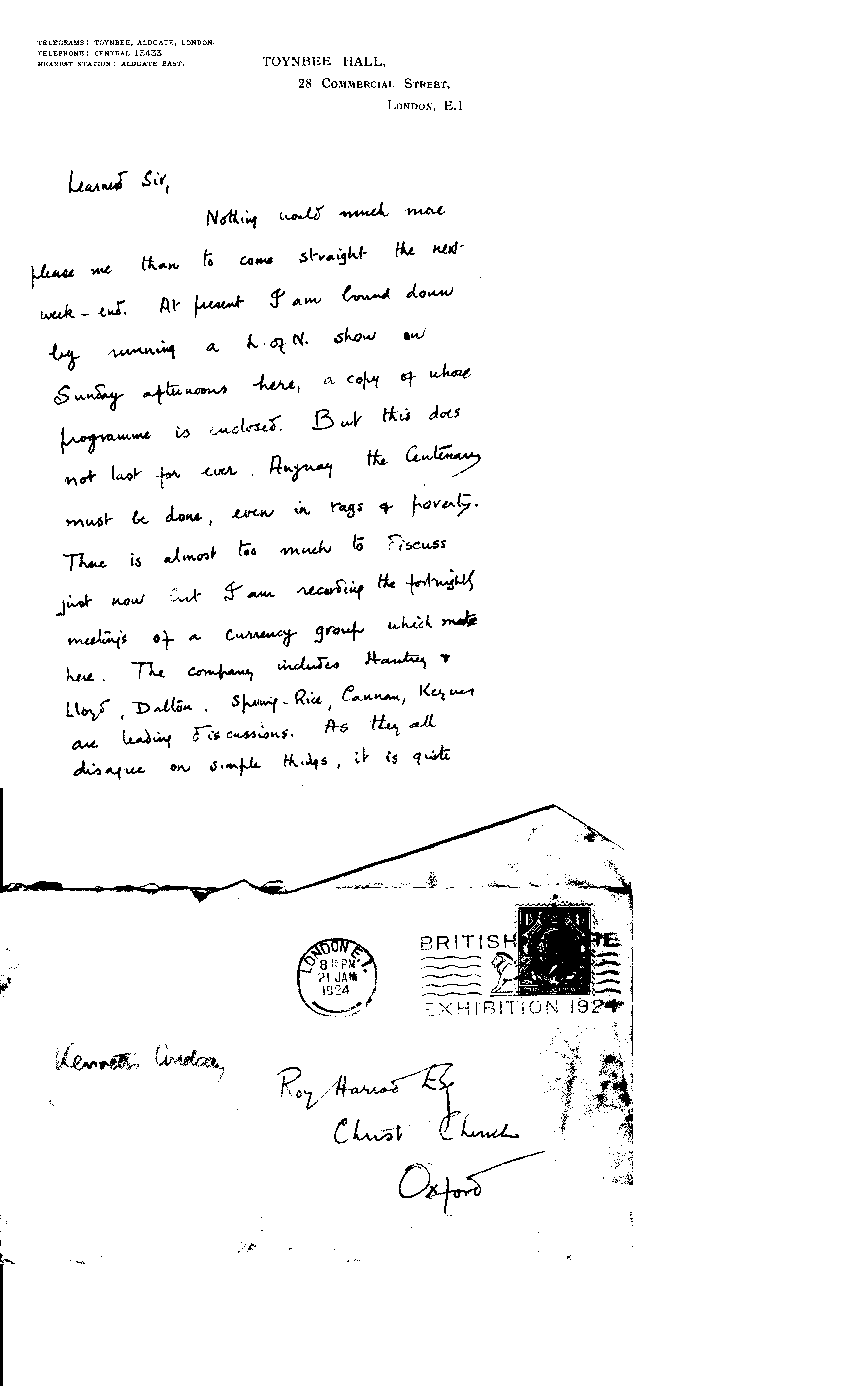 TELEGRAMS: TOYNBEE, ALDGATE, LONDON.
TELEPHONE: CENTRAL 13433
NEAREST STATION: ALDGATE EAST.
TOYNBEE HALL,
28 COMMERCIAL STREET,
LONDON, E.1
Learned Sir,
Nothing would much more
please me than to come straight the next
week-end. At present I am bound down
by running a L. of N. show on
Sunday afternoons here, a copy of whose
programme is enclosed. But this does
not last for ever. Anyway the Centenary
must be done, even in rags & poverty.
There is almost too much to discuss
just now but I am recording the fortnightly
meetings of a currency group which meets
here. The company includes Hawtrey &
Lloyd, Dalton. Spring-Rice, Cannan, Keynes
are leading discussions. As they all
disagree on simple things, it is quite
LONDON E.1.
8 PM
21 JAN
1924
BRITISH
EXHIBITION 1924
Kenneth Lindsay
Roy Harrod Esq
Christ Church
Oxford